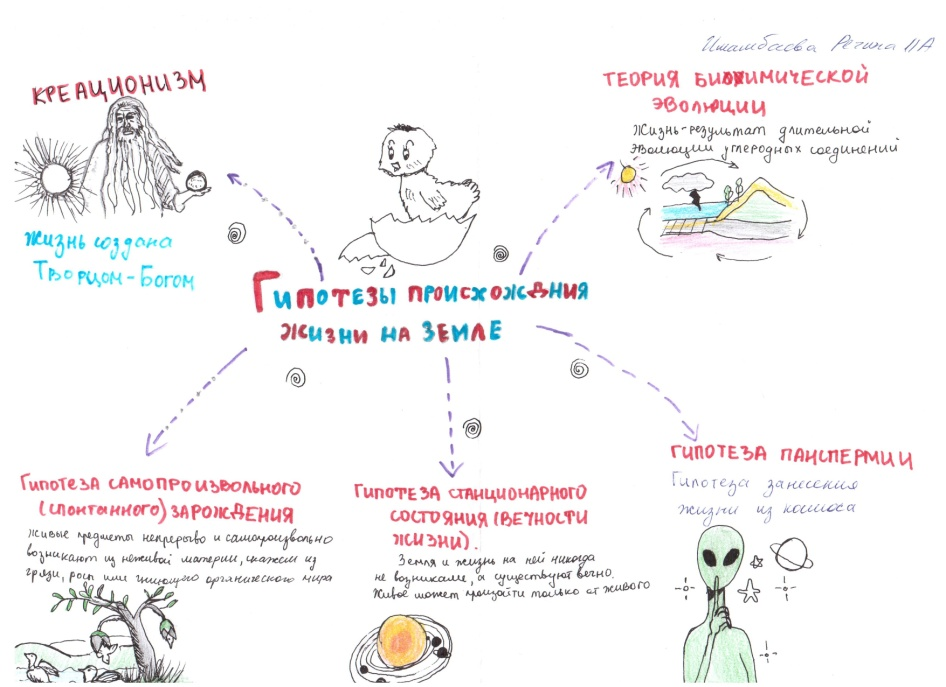 Ишамбаева Регина 11А
КРЕАЦИОНИЗМ
Жизнь создана
Творцом-Богом
ТЕОРИЯ БИОХИМИЧЕСКОЙ
ЭВОЛЮЦИИ
Жизнь-результат длительной
эволюции углеродных соединений
ГИПОТЕЗЫ ПРОИСХОЖДНИЯ
ЖИЗНИ НА ЗЕМЛЕ
ГИПОТЕЗА САМОПРОИЗВОЛЬНОГО
(СПОНТАННОГО) ЗАРОЖДЕНИЯ
живые предметы непрерыво и самопроизвольно
возникают из неживой материи, скажем из
грязи, росы или гниющего органического мира
ГИПОТЕЗА СТАНЦИОНАРНОГО
СОСТОЯНИЯ (ВЕЧНОСТИ
ЖИЗНИ).
Земля и жизнь на ней никогда
не возникали, а существуют вечно.
Живое может произойти только от живого
ГИПОТЕЗА ПАНСПЕРМИИ
Гипотеза занесения
жизни из космоса